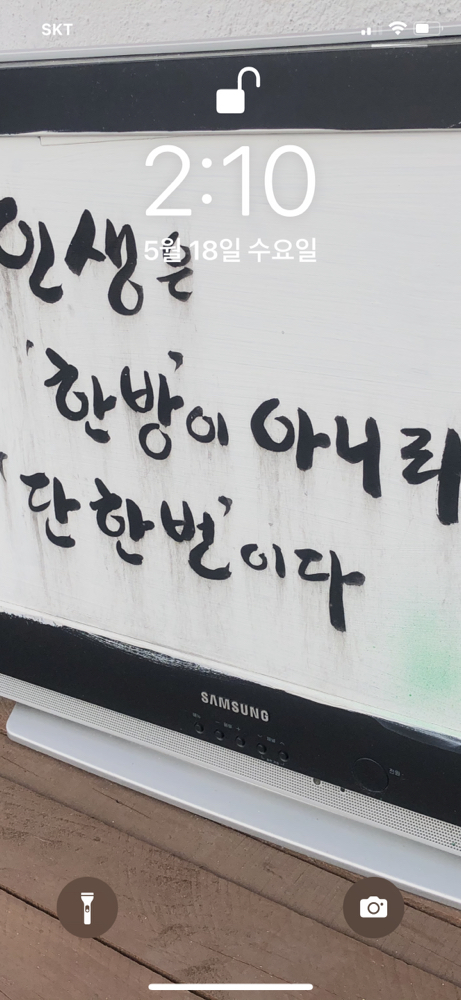 SKT
2:10
5월 18일 수요일
인생은
'한방'이 아니라
'단 한번'이다
SAMSUNG